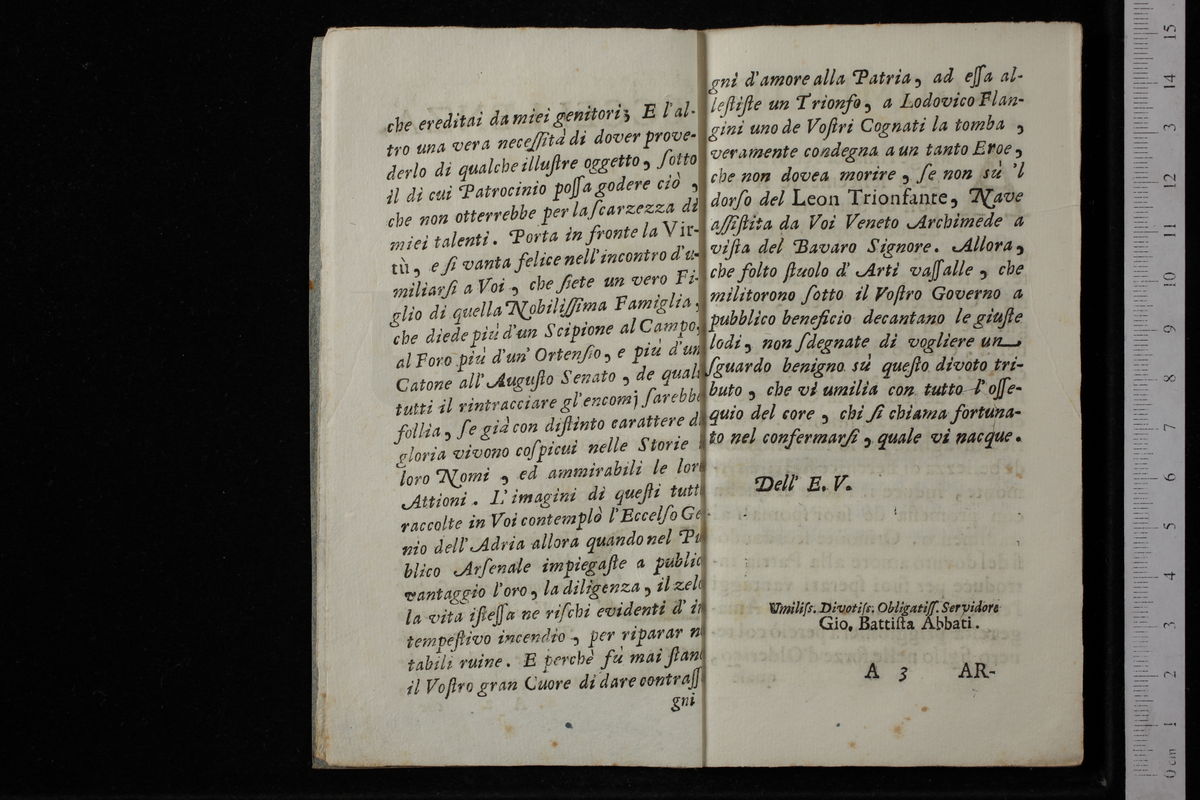 che ereditai da miei genitori; E l'al-
tro una vera neceſſità di dover prove-
derlo di qualche illuſtre oggetto, ſotto
il di cui Patrocinio poſſa godere ciò,
che non otterrebbe per la ſcarzezza di
miei talenti. Porta in fronte la Vir-
tù, e ſi vanta felice nell'incontro d'u-
miliarſi a Voi, che ſiete un vero Fi-
glio di quella Nobiliſſima Famiglia,
che diede più d'un Scipione al Campo,
al Foro più d'un Ortenſio, e più d'un
Catone all'Auguſto Senato, de quali
tutti il rintracciare gl'encomj ſarebbe
follia, ſe già con diſtinto carattere di
gloria vivono coſpicui nelle Storie
loro Nomi, ed ammirabili le loro
Attioni. L'imagini di queſti tutt
raccolte in Voi contemplò l'Eccelſo Ge-
nio dell'Adria allora quando nel Pu
blico Arſenale impiegaſte a public
vantaggio l'oro, la diligenza, il zelo
la vita iſteſſa ne riſchi evidenti d'in
tempeſtivo incendio, per riparar n
tabili ruine. E perchè fù mai ſtan
il Voſtro gran Cuore di dare contraſſ
gni
gni d'amore alla Patria, ad eſſa al-
leſtiſte un Trionfo, a Lodovico Flan-
gini uno de Voſtri Cognati la tomba,
veramente condegna a un tanto Eroe,
che non dovea morire, ſe non sù 'l
dorſo del Leon Trionfante, Nave
aſſiſtita da Voi Veneto Archimede a
viſta del Bavaro Signore. Allora,
che folto ſtuolo d' Arti vaſſalle, che
militorono ſotto il Voſtro Governo a
pubblico beneficio decantano le giuſte
lodi, non ſdegnate di vogliere un
ſguardo benigno sù queſto divoto tri-
buto, che vi umilia con tutto l'oſſe-
quio del core, chi ſi chiama fortuna-
to nel confermarſi, quale vi nacque.
Dell' E. V.
Umiliſs. Divotiſs. Obligatiſſ. Servidore
Gio. Battiſta Abbati.
A 3 AR-
0 cm 1 2 3 4 5 6 7 8 9 10 11 12 3 14 15